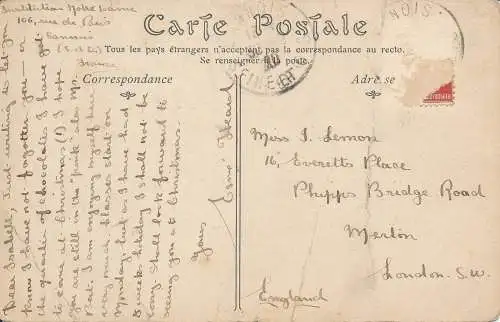 Institution Notre Dame
106, rue de Paris
Vannes
(S. et O.)
France
Carte Postale
Tous les pays étrangers n'acceptent pas la correspondance au recto.
Se renseigner à la poste.
Correspondance
Adresse
Dear Isabell, Just writing to let you
know I have not forgotten you – or
the quarter of chocolates I have got
to come at Christmas (?) I hope
you are still in the "pink" also Mr.
I am enjoying myself here
very much, classes start on
Monday, but as I have had
5 weeks holiday I shall not be
sorry. Shall look forward to
seeing you at Christmas.
Yours
Miss I. Lemon
16, Everetts Place
Phipps Bridge Road
Merton
London. S.W.
England